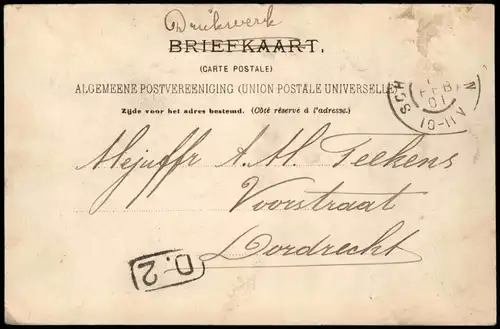 Drukwerk
BRIEFKAART.
(CARTE POSTALE)
ALGEMEENE POSTVEREENIGING (UNION POSTALE UNIVERSELLE)
Zijde voor het adres bestemd. (Côté réservé à l'adresse.)
SCH N
FEB
01
10-11A
Mejuffr A. M. Teekens
Voorstraat
Dordrecht
D:2